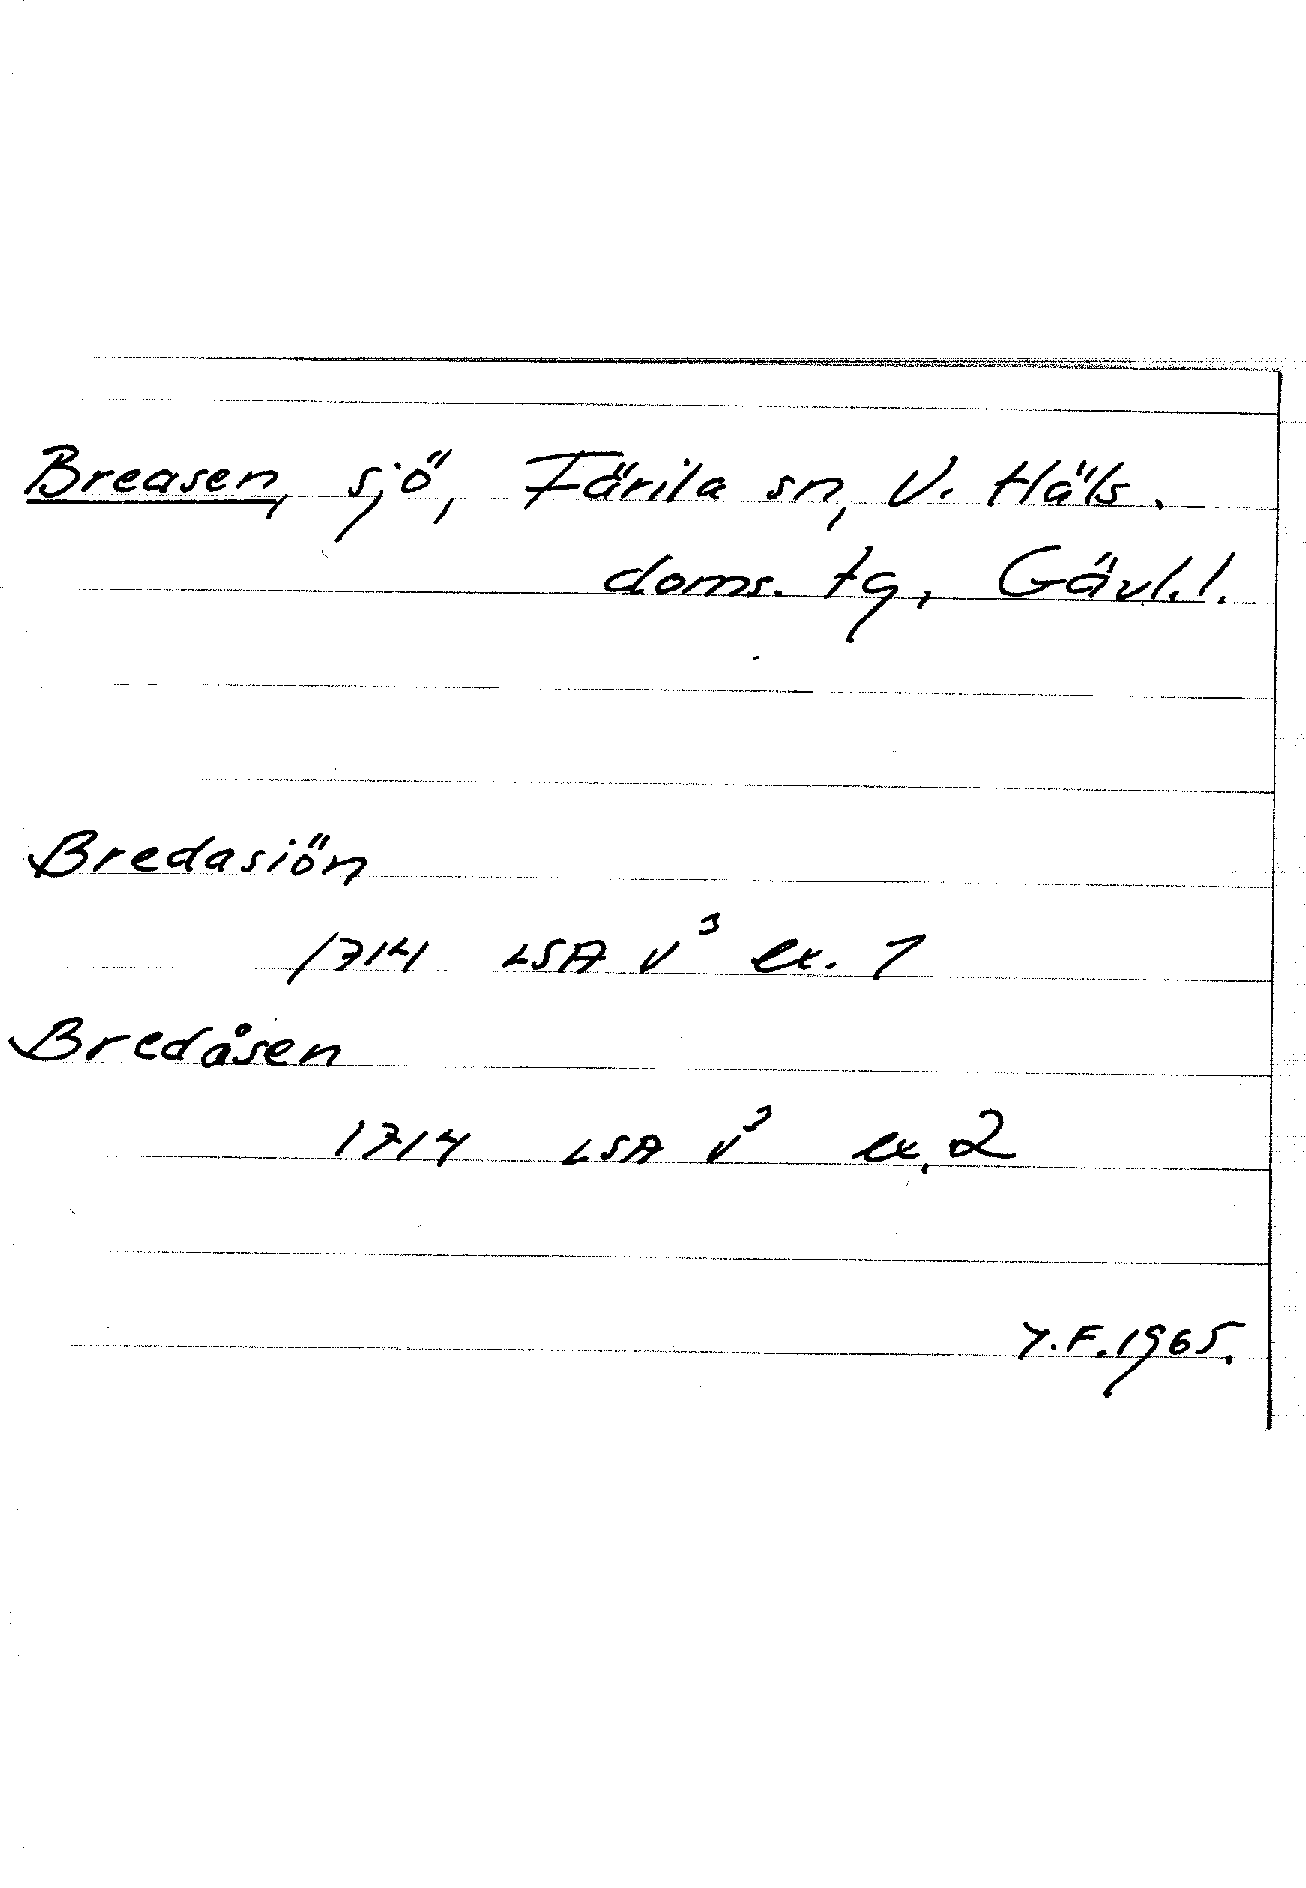 Breasen, sjö, Färila sn, V. Häls.
doms. tg, Gävl.l.
Bredasiön
1714 LSA V³ ex. 1
Bredåsen
1714 LSA V³ ex. 2
Y.F.1965.